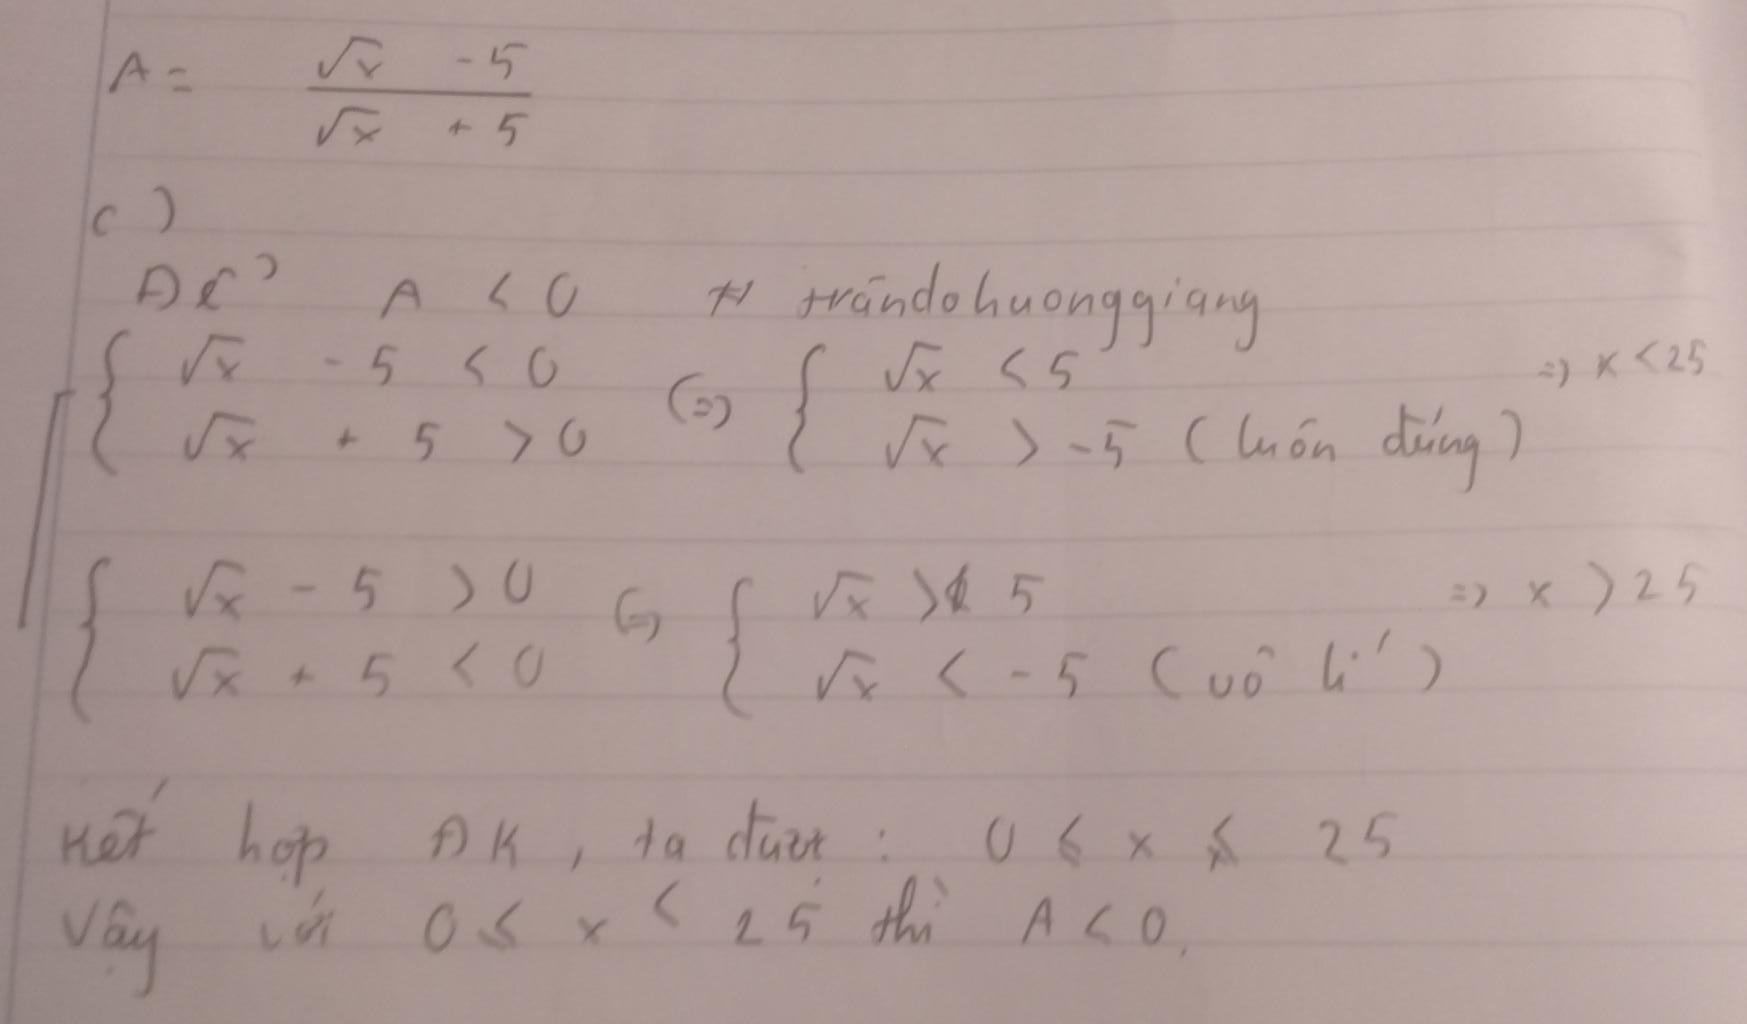 A = (√x - 5)/(√x + 5)
c)
Để A < 0 # trandohuonggiang
{ √x - 5 < 0 (=) { √x < 5 => x < 25
{ √x + 5 > 0 { √x > -5 (luôn đúng)
{ √x - 5 > 0 (=) { √x > 5 => x > 25
{ √x + 5 < 0 { √x < -5 (vô lí)
Kết hợp ĐK, ta được : 0 ≤ x < 25
Vậy với 0 ≤ x < 25 thì A < 0.